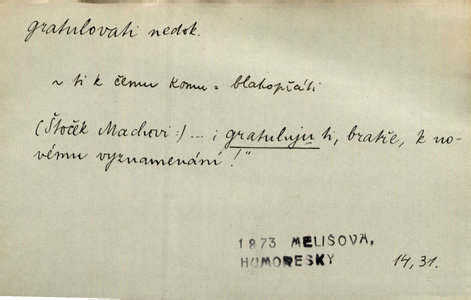 gratulovati nedok.
~ ti k čemu komu = blahopřáti
(Štoček Machovi:) ... ; gratuluju ti, bratře, k no-
vému vyznamenání!"
1873 MELIŠOVA,
HUMORESKY 14,31.